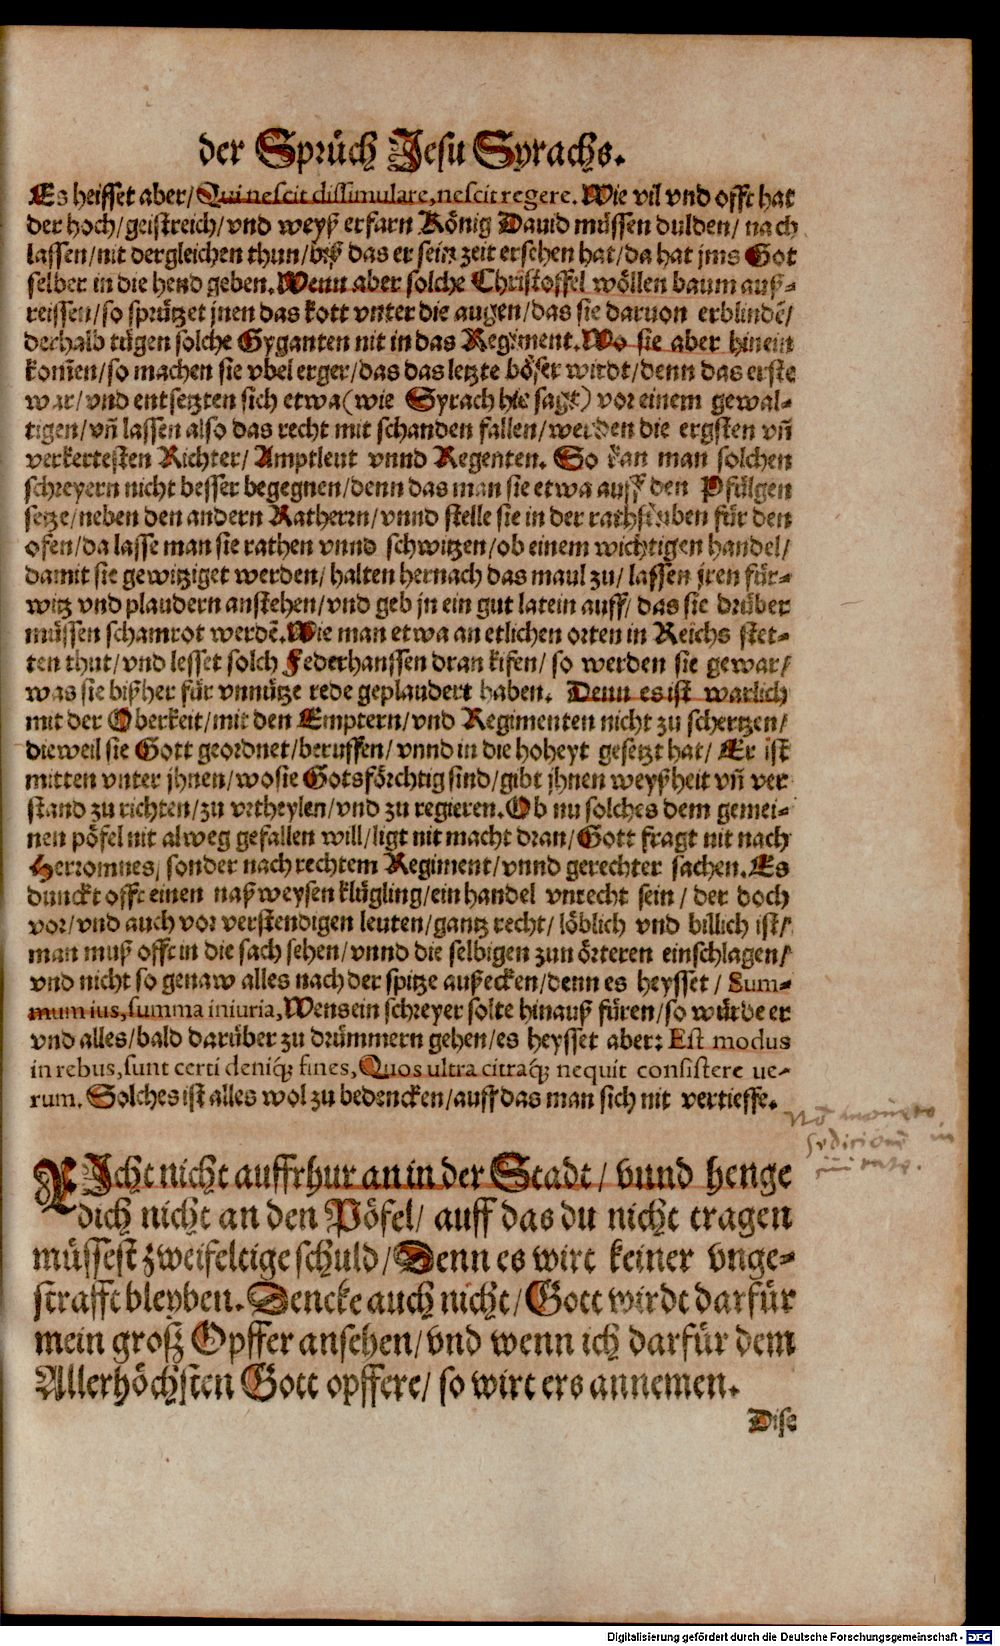 der Sprüch Jesu Syrachs.
Es heisset aber/ Qui nescit dissimulare, nescit regere. Wie vil vnd offt hat
der hoch/ geistreich/ vnd weyß erfarn König Dauid müssen dulden/ nach
lassen/ nit dergleichen thun/ biß das er sein zeit ersehen hat/ da hat jms Got
selber in die hend geben. Wenn aber solche Christoffel wöllen baum auß-
reissen/ so sprützet jnen das kott vnter die augen/ das sie daruon erblindē/
derhalb tügen solche Gyganten nit in das Regiment. Wo sie aber hinein
kom̄en/ so machen sie vbel erger/ das das letzte böser wirdt/ denn das erste
war/ vnd entsetzten sich etwa (wie Syrach hie sagt) vor einem gewal-
tigen/ vn̄ lassen also das recht mit schanden fallen/ werden die ergsten vn̄
verkertesten Richter/ Amptleut vnnd Regenten. So kan man solchen
schreyern nicht besser begegnen/ denn das man sie etwa auff den Pfülgen
setze/ neben den andern Ratherrn/ vnnd stelle sie in der rathstuben für den
ofen/ da lasse man sie rathen vnnd schwitzen/ ob einem wichtigen handel/
damit sie gewitziget werden/ halten hernach das maul zu/ lassen jren für-
witz vnd plaudern anstehen/ vnd geb jn ein gut latein auff/ das sie drüber
müssen schamrot werdē. Wie man etwa an etlichen orten in Reichs stet-
ten thut/ vnd lesset solch Federhanssen dran kifen/ so werden sie gewar/
was sie bißher für vnnütze rede geplaudert haben. Denn es ist warlich
mit der Oberkeit/ mit den Emptern/ vnd Regimenten nicht zu schertzen/
dieweil sie Gott geordnet/ beruffen/ vnnd in die hoheyt gesetzt hat/ Er ist
mitten vnter jhnen/ wo sie Gotsförchtig sind/ gibt jhnen weyßheit vn̄ ver
stand zu richten/ zu vrtheylen/ vnd zu regieren. Ob nu solches dem gemei-
nen pöfel nit alweg gefallen will/ ligt nit macht dran/ Gott fragt nit nach
Herromnes, sonder nach rechtem Regiment/ vnnd gerechter sachen. Es
dunckt offt einen naßweysen klügling/ ein handel vnrecht sein/ der doch
vor/ vnd auch vor verstendigen leuten/ gantz recht/ löblich vnd billich ist/
man muß offt in die sach sehen/ vnnd die selbigen zun örteren einschlagen/
vnd nicht so genaw alles nach der spitze außecken/ denn es heysset/ Sum-
mum ius, summa iniuria, Wens ein schreyer solte hinauß füren/ so würde er
vnd alles/ bald darüber zu drümmern gehen/ es heysset aber: Est modus
in rebus, sunt certi deniq́; fines, Quos ultra citraq́; nequit consistere ue-
rum. Solches ist alles wol zu bedencken/ auff das man sich nit vertieffe.
sediciōnē in
RIcht nicht auffrhur an in der Stadt/ vnnd henge
dich nicht an den Pöfel/ auff das du nicht tragen
müssest zweifeltige schuld/ Denn es wirt keiner vnge-
strafft bleyben. Dencke auch nicht/ Gott wirdt darfür
mein groß Opffer ansehen/ vnd wenn ich darfür dem
Allerhöchsten Gott opffere/ so wirt ers annemen.
Dise
Digitalisierung gefördert durch die Deutsche Forschungsgemeinschaft - DFG